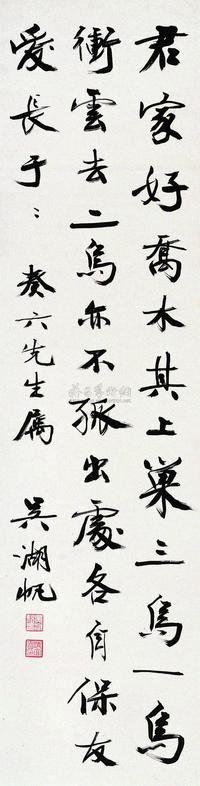 君家好喬木其上巢三烏一烏
衝雲去二烏亦不孤出處各自保友
愛長于〻
癸六先生屬
吳湖帆